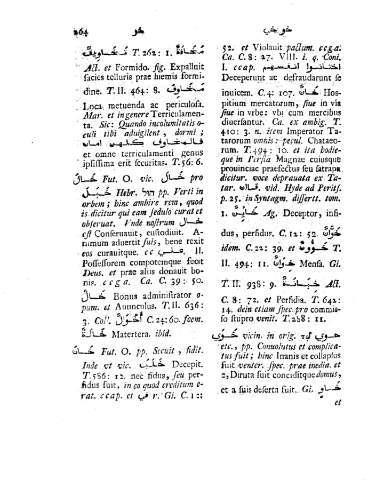 264 خو خو خي
مَخَافَةٌ T. 262: 1. مَخَاوِيفُ
Act. et Formido. fig. Expalluit
facies telluris prae hiemis formi-
dine. T. II. 464: 8. مَخَاوِفُ
Loca metuenda ac periculosa.
Mar. et ingenere Terriculamen-
ta. Sic: Quando incolumitatis o-
culi tibi advigilent, dormi;
et omne terriculamenti genus
ipsissima erit securitas. T. 56: 6.
خَالَ Fut. O. vic. خَالَ pro
Hebr. pp. Verti in
orbem; hinc ambire rem, quod
is dicitur qui eam sedulo curat et
observat. Unde nostrum خَالَ
est Conservavit, custodivit. A-
nimum advertit suis, bene rexit
eos curavitque. II.
Possessorem compotemque fecit
Deus. et prae aliis donavit bo-
nis. c c g a. Ca. C. 39: 50.
خَالٌ Bonus administrator o-
pum. et Avunculus. T. II. 636:
3. Coll. أَخْوَالٌ C. 24: 60. foem.
خَالَةٌ Matertera. ibid.
خَانَ Fut. O. pp. Secuit, fidit.
Inde et vic. Decepit.
T. 586: 12. nec fidus, seu per-
fidus fuit, in eo quod creditum e-
rat. c c a p. et في r. Gl. C. 12:
52. et Violavit pactum. c c g a.
Ca. C. 8: 27. VIII. i. q. Conj.
I. c c a p. اختانوا انفسهم
Deceperunt ac defraudarunt se
invicem. C. 4: 107. خَانٌ Ho-
spitium mercatorum, sive in via
sive in urbe: ubi cum mercibus
diversantur. Ca. ex ambig. T.
410: 3. n. item Imperator Ta-
tarorum omnis: pecul. Chataeo-
rum. T. 494: 10. et ita hodie-
que in Persia Magnae cuiusque
provinciae praefectus seu satrapa
dicitur. voce depravata ex Ta-
tar. قاان vid. Hyde ad Peritsf.
p. 25. in Syntagm. dissertt. tom.
1. خَاوِنٌ Ag. Deceptor, infi-
dus, perfidus. C. 12: 52. خَوَّانٌ
idem. C. 22: 39. et خَؤُونٌ T.
II. 494: 11. خِوَانٌ Mensa. Gl.
T. II. 938: 9. خِيَانَةٌ Act.
C. 8: 72. et Perfidia. T. 642:
14. dein etiam spec. pro commis-
so stupro venit. T. 268: 11.
خَوِيَ vicin. in orig. cf
etc., pp. Convolutus et complica-
tus fuit; hinc Inanis et collapsus
fuit venter. spec. prae inedia. et
2, Diruta fuit conciditque domus,
et a suis deserta fuit. Gl. خَاوٍ
et